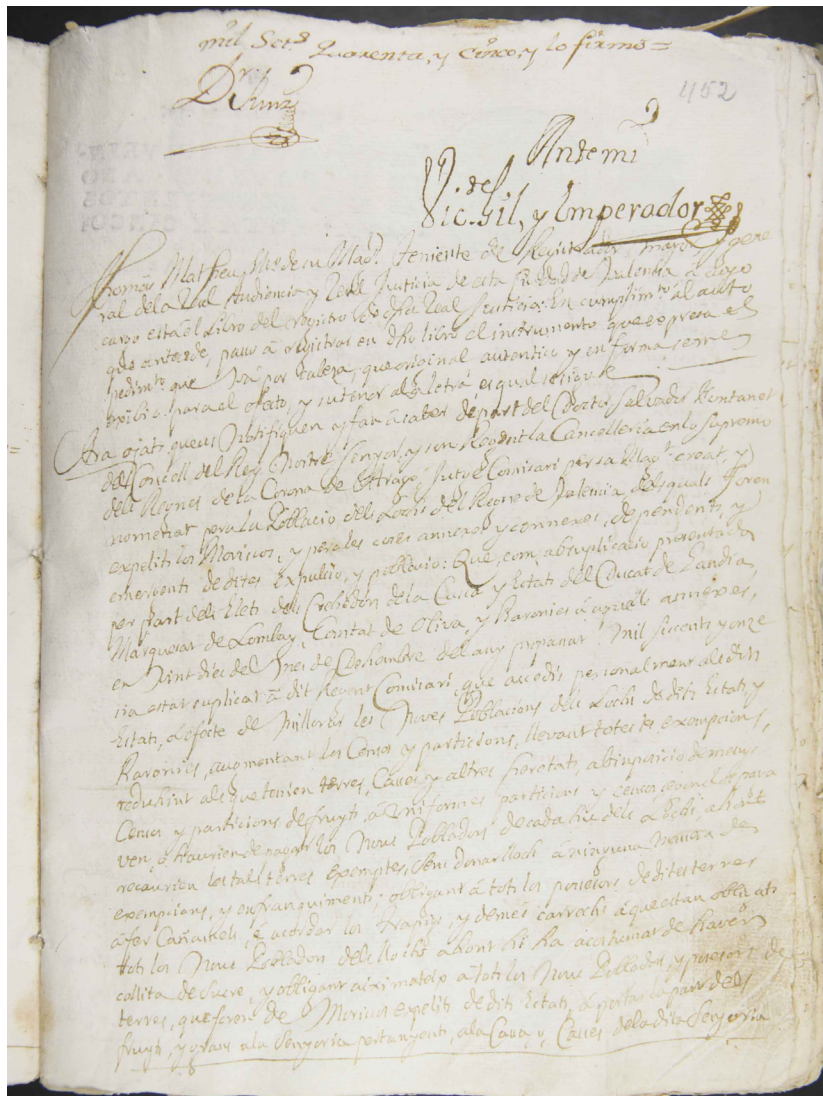 mil Set.s Quarenta, y cinco, y lo firmó =
452
D.r Sanz
Ante mi
V. de
Vic. Gil, y Emperador
Thomás Matheu Ss.no de su Mag.d Teniente de Registrador mayor y gene
ral de la Real Audiencia y Real Justicia de esta Ciudad de Valencia a cuyo
cargo está el Libro del registro de dha Real Justicia: En cumplim.to al auto
que antecede, passo â registrar en dho libro el instrumento que expresa el
pedim.to que vâ por cabeza, que original autentico y en forma se me
exibió para el efeto, y su tenor a la letra es qual se sigue
Ara ojats queus Notifiquen y fan â saber de part del Doctor Salvador Fontanet
del Concell del Rey Nostre Senyor, y son Regent la Cancelleria en lo Supremo
dels Regnes de la Corona de Aragó, Jutge Comisari per sa Mag.t creat, y
nomenat pera la Poblacio dels Lochs del Regne de Valencia, dels quals foren
expelits los Moriscos, y pera les coses annexes y connexes, dependents, y
emergents de dites Expulsio, y poblacio: Que, com ab suplicacio presentada
per part dels Elets dels Crehedors de la Casa y Estats del Ducat de Gandia,
Marquesat de Lombay, Comtat de Oliva, y Baronies â aquells annexes,
en vint dies del Mes de Dehembre del any propasat Mil siscents y onze
sia estat suplicat â dit Regent Comisari, que accedis personalment als dits
Estats, a efecte de millorar les Noves Poblacions dels Lochs de dits Estats, y
Baronies, augmentant los Censos y particions, llevant totes les exempcions,
reduhint als que tenien terres, Cases y altres heretats, ab imposicio de menys
Censos y particions de fruyts, â Uniformes particions y censos
ven, o haurien de pagar los Nous Pobladors de cada hu dels a hont
recaurien les tals terres exemptes, sens donar lloch â ninguna manera de
exempcions, y enfranquiments; obligant â tots los posesors de dites terres
â fer Cañamels, e acordar los Trapigs, y demés carrechs â que estan obligats
tots los Nous Pobladors dels llochs ahont hi ha acostumat de haver
collita de Sucre, y obligant aiximateix a tots los Nous Pobladors, y posesors de
terres, que foren de Moriscos expelits de dits Estats, â portar la part dels
fruyts, y grans a la Senyoria pertanyents, a la Casa, y Cases de la dita Senyoria